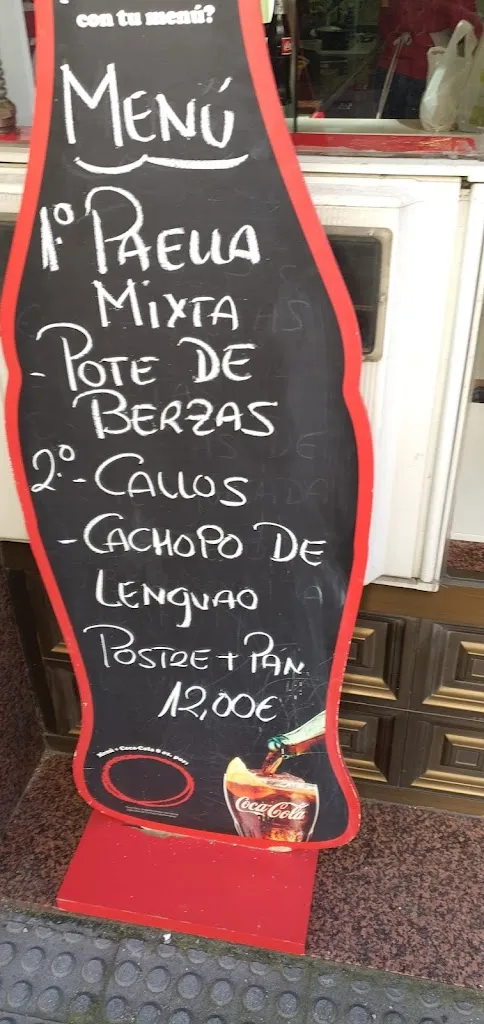 con tu menú?
MENÚ
1º PAELLA
MIXTA
- POTE DE
BERZAS
2º.- CALLOS
- CACHOPO DE
LENGUAO
POSTRE + PAN
12,00€
Menú + Coca-Cola
Coca-Cola